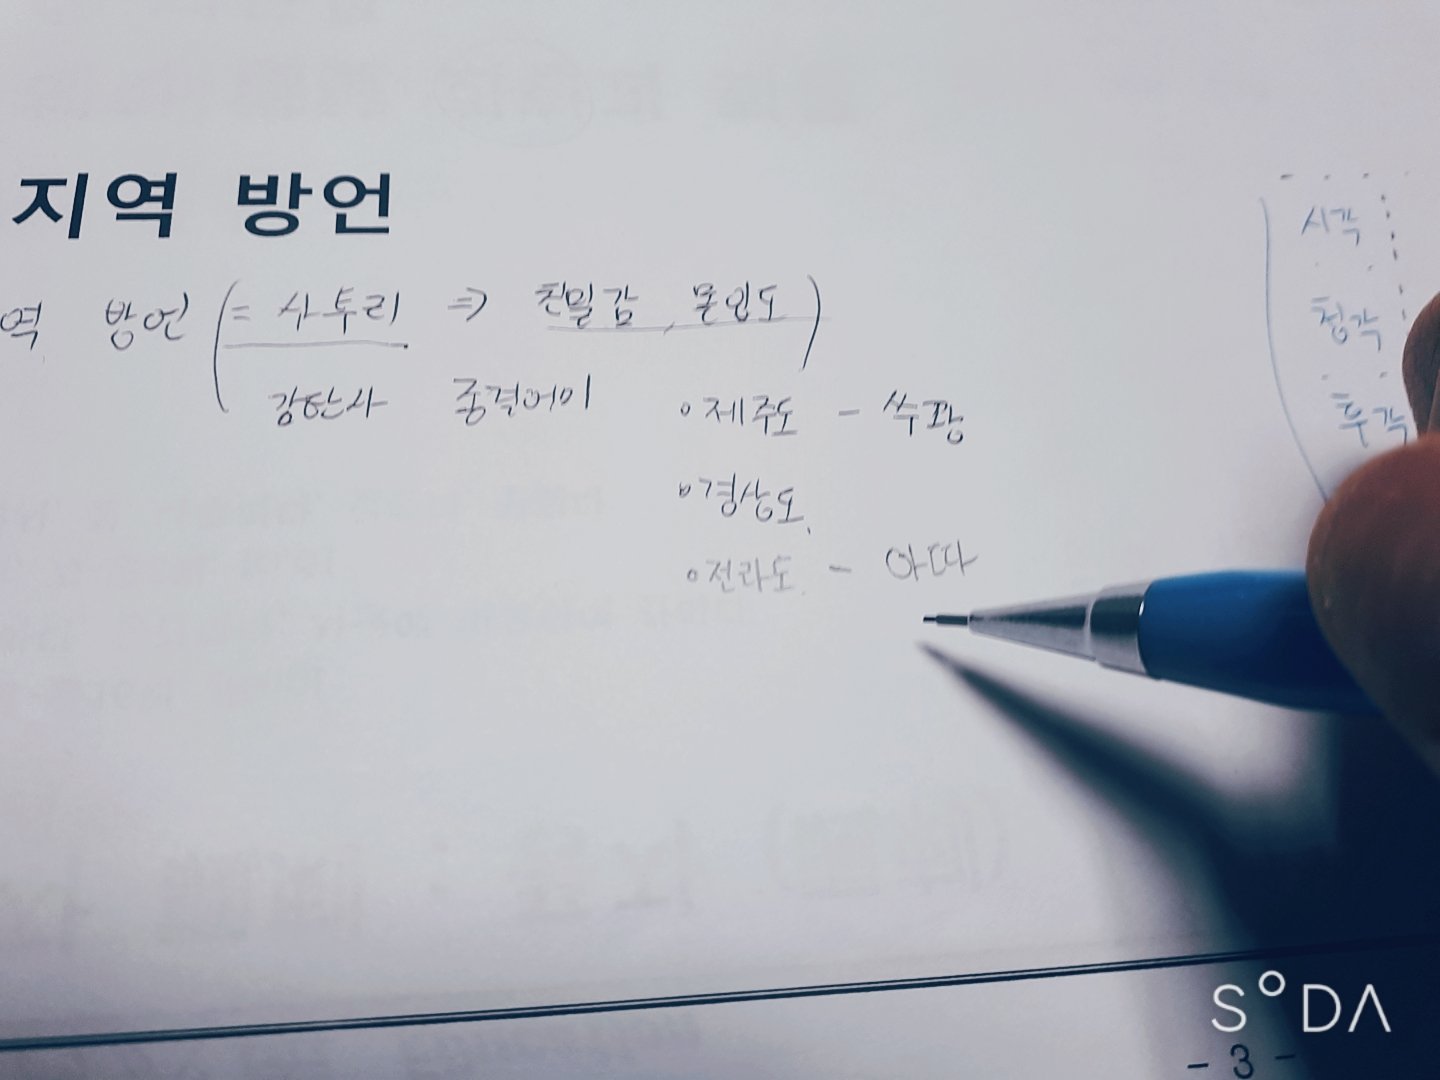 지역 방언
역 방언 (= 사투리 => 친밀감, 몰입도)
감탄사 종결어미
◦제주도 - 쑤꽝
◦경상도
◦전라도 - 아따
시각
청각
후각
S°DA
- 3 -